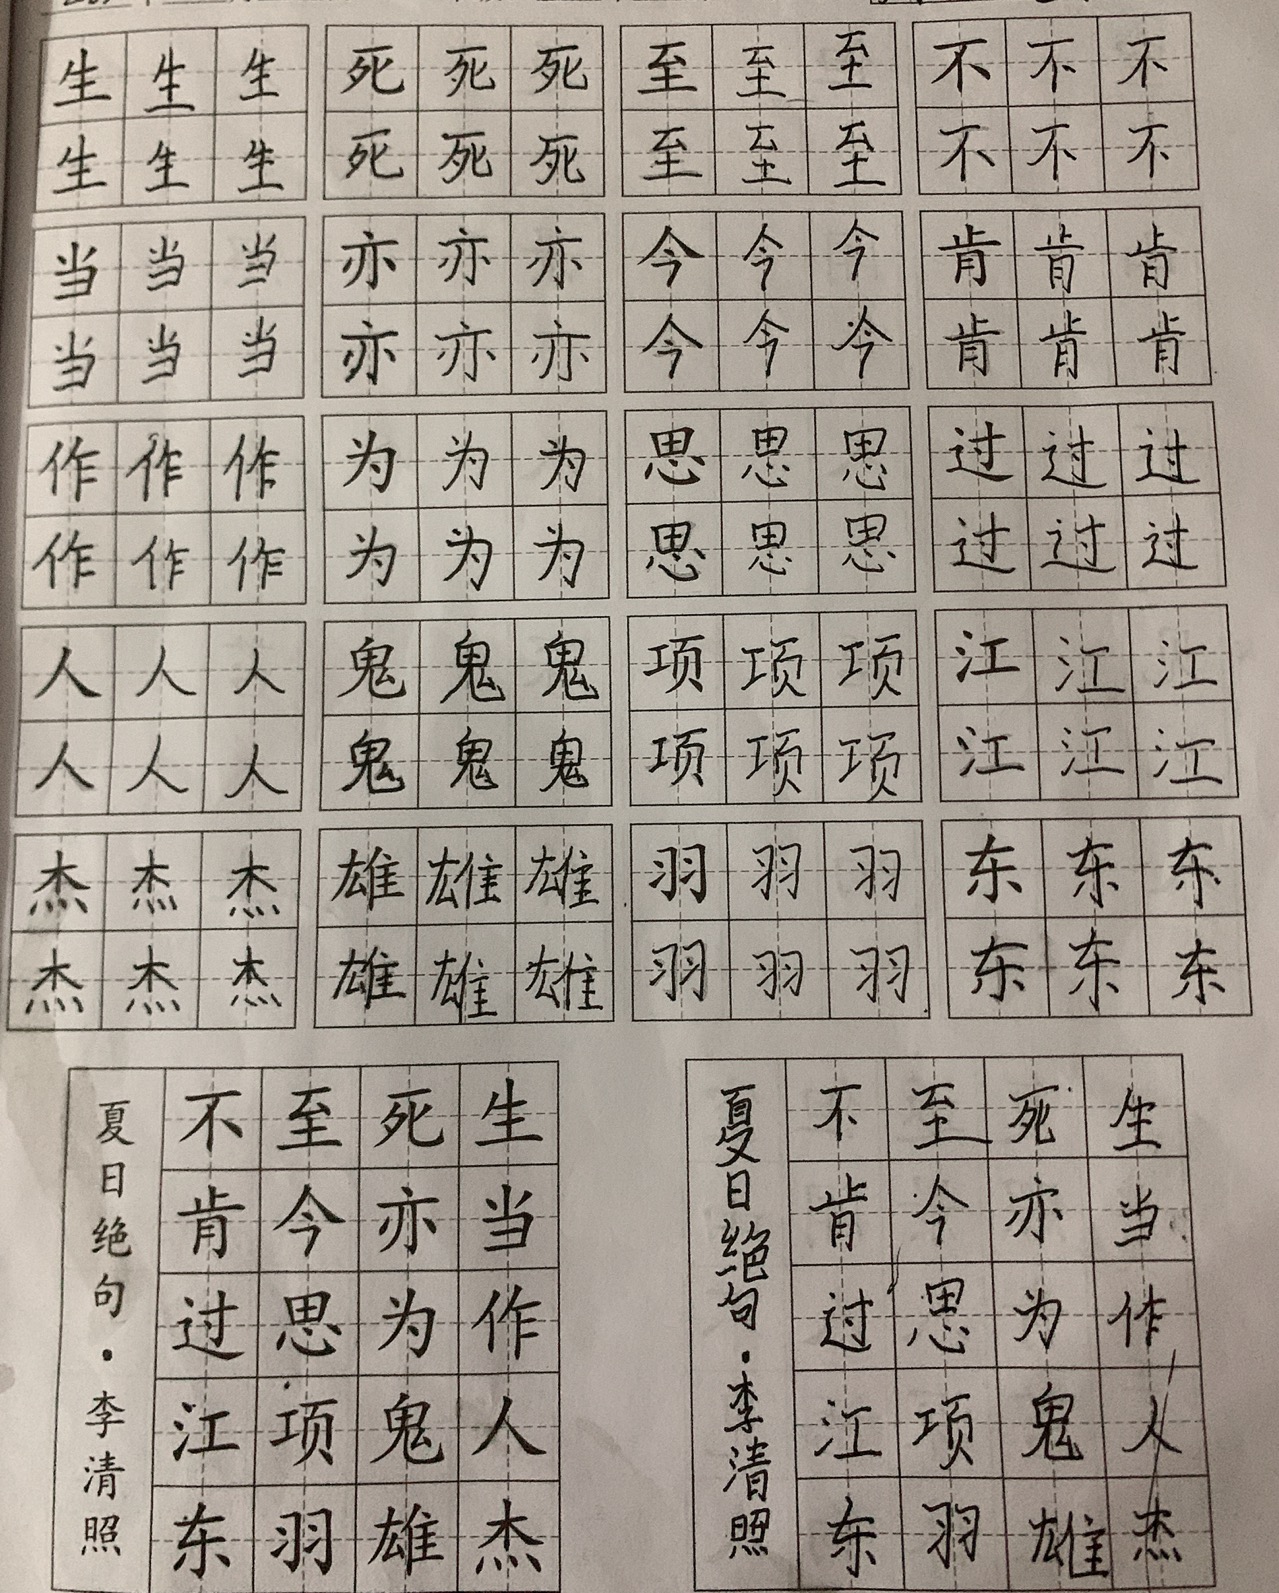 生生生 死死死 至至至 不不不
生生生 死死死 至至至 不不不
当当当 亦亦亦 今今今 肯肯肯
当当当 亦亦亦 今今今 肯肯肯
作作作 为为为 思思思 过过过
作作作 为为为 思思思 过过过
人人人 鬼鬼鬼 项项项 江江江
人人人 鬼鬼鬼 项项项 江江江
杰杰杰 雄雄雄 羽羽羽 东东东
杰杰杰 雄雄雄 羽羽羽 东东东
生当作人杰
死亦为鬼雄
至今思项羽
不肯过江东
夏日绝句·李清照
生当作人杰
死亦为鬼雄
至今思项羽
不肯过江东
夏日绝句·李清照